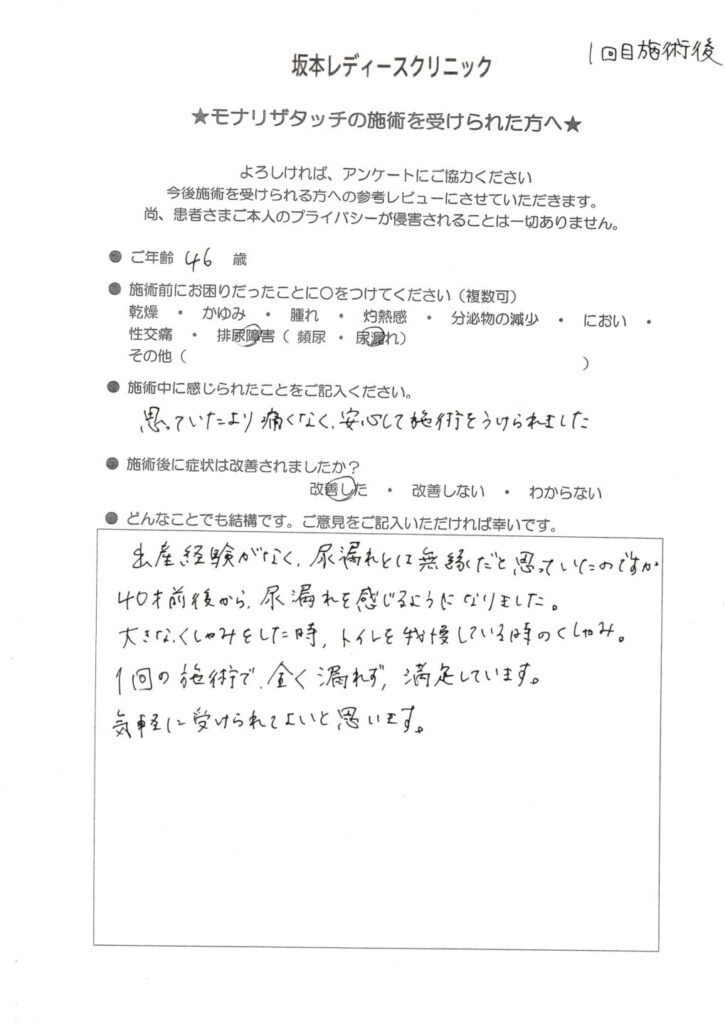 1回目施術後
坂本レディースクリニック
★モナリザタッチの施術を受けられた方へ★
よろしければ、アンケートにご協力ください
今後施術を受けられる方への参考レビューにさせていただきます。
尚、患者さまご本人のプライバシーが侵害されることは一切ありません。
● ご年齢 46 歳
● 施術前にお困りだったことに○をつけてください（複数可）
乾燥 ・ かゆみ ・ 腫れ ・ 灼熱感 ・ 分泌物の減少 ・ におい ・
性交痛 ・ 排尿障害（ 頻尿 ・ 尿漏れ）
その他（ ）
● 施術中に感じられたことをご記入ください。
思っていたより痛くなく、安心して施術をうけられました
● 施術後に症状は改善されましたか？
改善した ・ 改善しない ・ わからない
● どんなことでも結構です。ご意見をご記入いただければ幸いです。
出産経験がなく、尿漏れとは無縁だと思っていたのですが
40才前後から、尿漏れを感じるようになりました。
大きなくしゃみをした時、トイレを我慢している時のくしゃみ。
1回の施術で、全く漏れず、満足しています。
気軽に受けられてよいと思います。